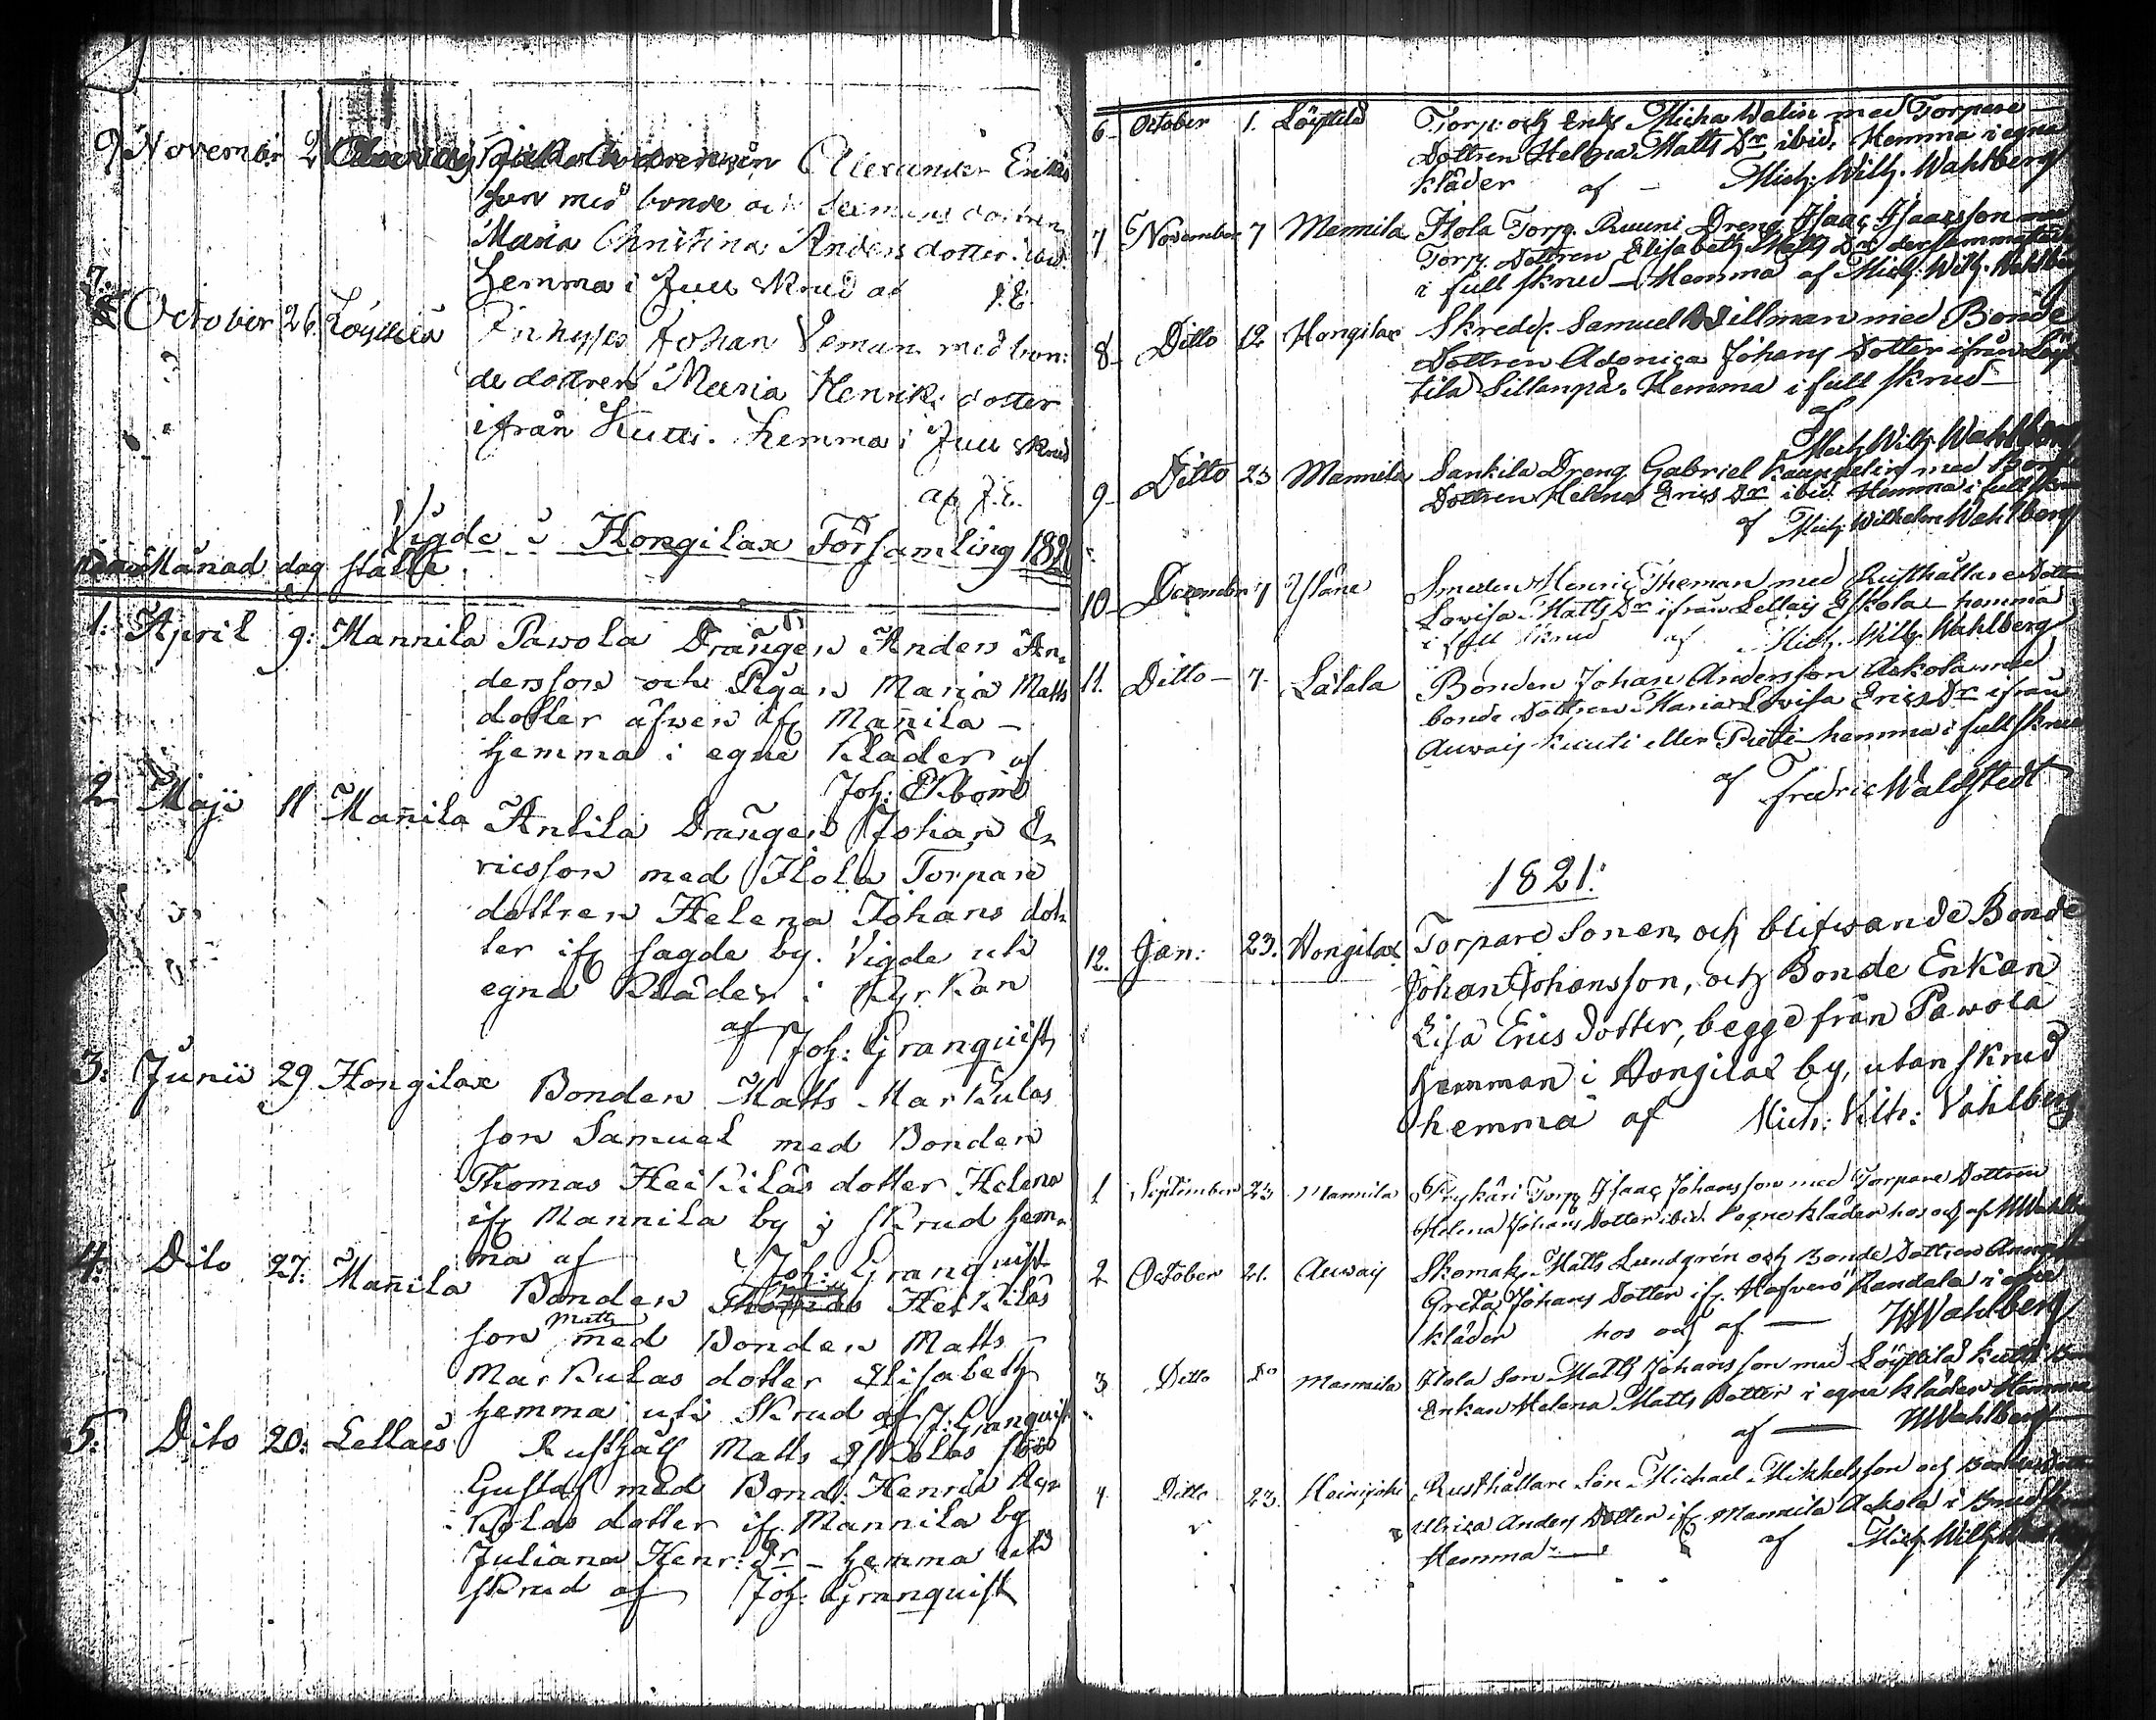 9 November 2 Alexander Erics
son med bonde och dottren
Maria Christina Anders dotter ibid.
hemma i full skrud af J. E.
7. October 26. Löytilä Inhyses Johan Leman med bon:
de dottren Maria Henriks dotter
ifrån Kutti. hemma i full skrud
af J. E.
Vigde i Hongilax Församling 1820
Månad dag ställe
1. April 9: Mannila Pawola Drängen Anders An-
dersson och Pigan Maria Matts
dotter äfwen ifr Mañila –
hemma i egna Kläder af
Joh: Ekbom
2. Maji 11 Mañila Anttila Drängen Johan E-
ricsson med Ilola Torpare
dottren Helena Johans dot-
ter ifr sagde by. Vigde uti
egna Kläder i Kyrkan
af Joh: Granquist
3. Junii 29 Hongilax Bonden Matts Markulas
son Samuel med Bonden
Thomas Heikkiläs dotter Helena
ifr Mannila by i skrud hem-
ma af Joh: Granquist
4. Dito 27. Mañila Bonden Thomas Heikkiläs
son Matts med Bonden Matts
Markulas dotter Elisabeth
hemma uti Skrud af J: Granquist
5. Dito 20: Lellais Rusthåll Matts Eskolas son
Gustaf med Bond: Henric
dotter ifr Mannila by
Juliana Henr: Dr – hemma uti
skrud af Joh: Granquist
6. October 1. Löytilä Torp: och Enkl Micha Walin med Torpare
Dottren Helena Matts Dr ibid. Hemma i egna
kläder af – Mich: Wilh. Wahlberg
7 November 7 Mannila Ilola Torp. Ruuni Dreng Isaac Isaacsson med
Torp. Dottren Elisabeth Matts Dr dersammastäds
i full skrud – Hemma af Mich: Wilh. Wahlberg
8 Ditto 12 Hongilax Skredd. Samuel Willman med Bonde
Dottren Adonica Johans Dotter ifrån Löy
tilä Sillanpä. Hemma i full skrud –
af
Mich Wilh. Wahlberg
9 Ditto 23 Mannila Sankila Dreng Gabriel med
Dottren Helena Erics Dr ibid. Hemma i full skrud
af Mich: Wilhelm Wahlberg
10 December 7 Yläne Smeden Henric Theman med Rusthållare Dottr
Lovisa Matts Dr ifrån Lellais Eskola – hemma
i full skrud af Mich. Wilh. Wahlberg
11. Ditto – 7. Lälala Bonden Johan Andersson Ackola med
bonde Dottren Maria Lovisa Erics Dr ifrån
Auwais Kuuti eller Pieti hemma i full skrud
af Fredric Waldstedt
1821:
12. Jan: 23. Hongilax Torpare Sonen och blifwande Bonde
Johan Johansson, och Bonde Enkan
Lisa Erics Dotter, begge från Pawola
hemman i Hongilax by, utan skrud
hemma af Mich: Vilh: Vahlberg
1 September 23 Mannila Torp Isaac Johansson med Torpare Dottren
Helena Johans Dotter ibid. i egne kläder hos och af MWahlberg
2 October 21. Auwais Skomak. Matts Lundgrén och Bonde Dottren Anna
Greta Johans Dotter ifr. Hofverö Randala i egne
kläder hos och af – MWahlberg
3 Ditto Do Mannila Ilola Son Matts Johansson med Löytilä Kutti
Enkan Helena Matts Dotter i egne kläder Hemma
af – MWahlberg
4 Ditto 23. Heinijoki Rusthållare Son Michael Mikkelsson och Bonde Dotter
Ulrica Anders Dotter ifr Mannila Ackola i Brudskrud
Hemma – af Mich Wilh